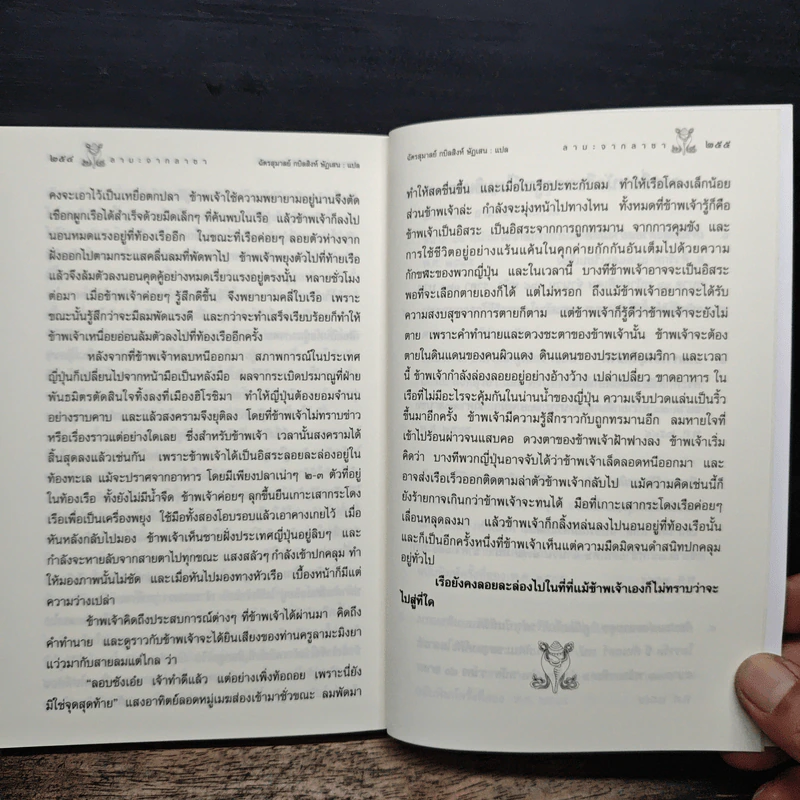 ๒๕๔ ลามะจากลาซา
ฉัตรสุมาลย์ กบิลสิงห์ ษัฏเสน : แปล
คงจะเอาไว้เป็นเหยื่อตกปลา ข้าพเจ้าใช้ความพยายามอยู่นานจึงตัด
เชือกผูกเรือได้สำเร็จด้วยมีดเล็กๆ ที่ค้นพบในเรือ แล้วข้าพเจ้าก็ลงไป
นอนหมดแรงอยู่ที่ท้องเรืออีก ในขณะที่เรือค่อยๆ ลอยตัวห่างจาก
ฝั่งออกไปตามกระแสคลื่นลมที่พัดพาไป ข้าพเจ้าพยุงตัวไปที่ท้ายเรือ
แล้วจึงล้มตัวลงนอนคุดคู้อย่างหมดเรี่ยวแรงอยู่ตรงนั้น หลายชั่วโมง
ต่อมา เมื่อข้าพเจ้าค่อยๆ รู้สึกดีขึ้น จึงพยายามคลี่ใบเรือ เพราะ
ขณะนั้นรู้สึกว่าจะมีลมพัดแรงดี และกว่าจะทำเสร็จเรียบร้อยก็ทำให้
ข้าพเจ้าเหนื่อยอ่อนล้มตัวลงไปที่ท้องเรืออีกครั้ง
หลังจากที่ข้าพเจ้าหลบหนีออกมา สภาพการณ์ในประเทศ
ญี่ปุ่นก็เปลี่ยนไปจากหน้ามือเป็นหลังมือ ผลจากระเบิดปรมาณูที่ฝ่าย
พันธมิตรตัดสินใจทิ้งลงที่เมืองฮิโรชิมา ทำให้ญี่ปุ่นต้องยอมจำนน
อย่างราบคาบ และแล้วสงครามจึงยุติลง โดยที่ข้าพเจ้าไม่ทราบข่าว
หรือเรื่องราวแต่อย่างใดเลย ซึ่งสำหรับข้าพเจ้า เวลานั้นสงครามได้
สิ้นสุดลงแล้วเช่นกัน เพราะข้าพเจ้าได้เป็นอิสระลอยละล่องอยู่ใน
ท้องทะเล แม้จะปราศจากอาหาร โดยมีเพียงปลาเน่าๆ ๒-๓ ตัวที่อยู่
ในท้องเรือ ทั้งยังไม่มีน้ำจืด ข้าพเจ้าค่อยๆ ลุกขึ้นยืนเกาะเสากระโดง
เรือเพื่อเป็นเครื่องพยุง ใช้มือทั้งสองโอบรอบแล้วเอาคางเกยไว้ เมื่อ
หันหลังกลับไปมอง ข้าพเจ้าเห็นชายฝั่งประเทศญี่ปุ่นอยู่ลิบๆ และ
กำลังจะหายลับจากสายตาไปทุกขณะ แสงสลัวๆ กำลังเข้าปกคลุม ทำ
ให้มองภาพนั้นไม่ชัด และเมื่อหันไปมองทางหัวเรือ เบื้องหน้าก็มีแต่
ความว่างเปล่า
ข้าพเจ้าคิดถึงประสบการณ์ต่างๆ ที่ข้าพเจ้าได้ผ่านมา คิดถึง
คำทำนาย และดูราวกับข้าพเจ้าจะได้ยินเสียงของท่านครูลามะมิงยา
แว่วมากับสายลมแต่ไกล ว่า
“ลอบซังเอ๋ย เจ้าทำดีแล้ว แต่อย่าเพิ่งท้อถอย เพราะนี่ยัง
มิใช่จุดสุดท้าย” แสงอาทิตย์ลอดหมู่เมฆส่องเข้ามาชั่วขณะ ลมพัดมา
ฉัตรสุมาลย์ กบิลสิงห์ ษัฏเสน : แปล
ลามะจากลาซา ๒๕๕
ทำให้สดชื่นขึ้น และเมื่อใบเรือปะทะกับลม ทำให้เรือโคลงเล็กน้อย
ส่วนข้าพเจ้าล่ะ กำลังจะมุ่งหน้าไปทางไหน ทั้งหมดที่ข้าพเจ้ารู้ก็คือ
ข้าพเจ้าเป็นอิสระ เป็นอิสระจากการถูกทรมาน จากการคุมขัง และ
การใช้ชีวิตอยู่อย่างแร้นแค้นในคุกค่ายกักกันอันเต็มไปด้วยความ
กักขฬะของพวกญี่ปุ่น และในเวลานี้ บางทีข้าพเจ้าอาจจะเป็นอิสระ
พอที่จะเลือกตายเองก็ได้ แต่ไม่หรอก ถึงแม้ข้าพเจ้าอยากจะได้รับ
ความสงบสุขจากการตายก็ตาม แต่ข้าพเจ้าก็รู้ดีว่าข้าพเจ้าจะยังไม่
ตาย เพราะคำทำนายและดวงชะตาของข้าพเจ้านั้น ข้าพเจ้าจะต้อง
ตายในดินแดนของคนผิวแดง ดินแดนของประเทศอเมริกา และเวลา
นี้ ข้าพเจ้ากำลังล่องลอยอยู่อย่างอ้างว้าง เปล่าเปลี่ยว ขาดอาหาร ใน
เรือที่ไม่มีอะไรจะคุ้มกันในน่านน้ำของญี่ปุ่น ความเจ็บปวดแล่นเป็นริ้ว
ขึ้นมาอีกครั้ง ข้าพเจ้ามีความรู้สึกราวกับถูกทรมานอีก ลมหายใจที่
เข้าไปร้อนผ่าวจนแสบคอ ดวงตาของข้าพเจ้าฝ้าฟางลง ข้าพเจ้าเริ่ม
คิดว่า บางทีพวกญี่ปุ่นอาจจับได้ว่าข้าพเจ้าเล็ดลอดหนีออกมา และ
อาจส่งเรือเร็วออกติดตามล่าตัวข้าพเจ้ากลับไป แม้ความคิดเช่นนี้ก็
ยังร้ายกาจเกินกว่าข้าพเจ้าจะทนได้ มือที่เกาะเสากระโดงเรือค่อยๆ
เลื่อนหลุดลงมา แล้วข้าพเจ้าก็กลิ้งหล่นลงไปนอนอยู่ที่ท้องเรือนั้น
และก็เป็นอีกครั้งหนึ่งที่ข้าพเจ้าเห็นแต่ความมืดมิดจนดำสนิทปกคลุม
อยู่ทั่วไป
เรือยังคงลอยละล่องไปในที่ที่แม้ข้าพเจ้าเองก็ไม่ทราบว่าจะ
ไปสู่ที่ใด